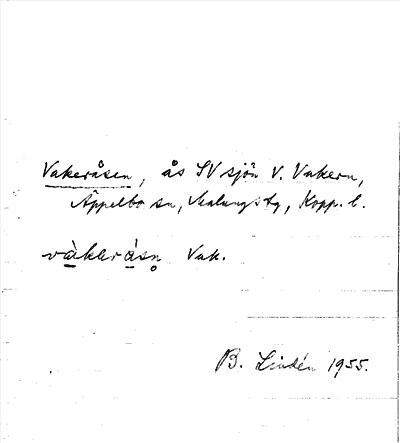 Vakeråsen, ås SV sjön V. Vakern,
Äppelbo sn, Malungs tg, Kopp. l.
và̱kerá̱sn̥ Vak.
B. Lindén 1955.